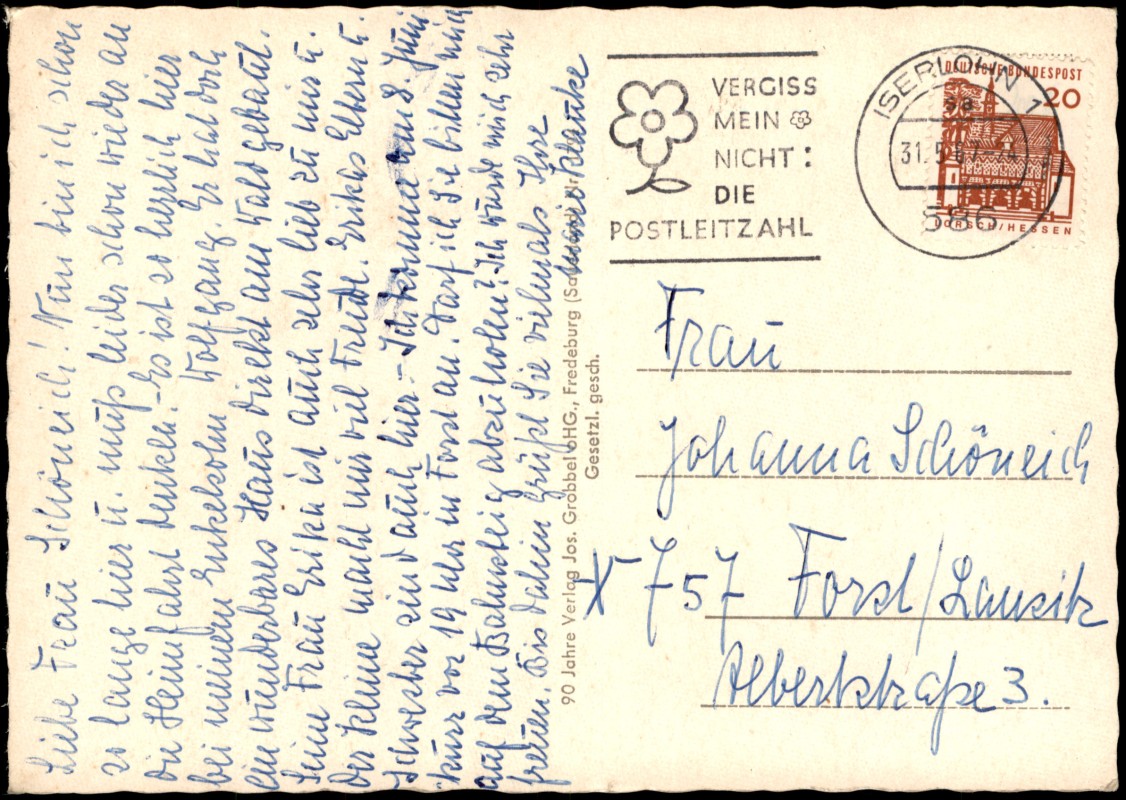 Liebe Frau Schöneich! Nun bin ich schon
so lange hier u. muß leider schon wieder an
die Heimfahrt denken. - Es ist so herrlich hier
bei meinem Enkelsohn Wolfgang. Er hat doch
ein wunderbares Haus direkt am Wald gebaut.
Seine Frau Erika ist auch sehr lieb zu mir u.
der Kleine macht mir viel Freude. Erikas Eltern u.
Schwester sind auch hier. - Ich komme am 8. Juni
kurz vor 19 Uhr in Forst an. Darf ich Sie bitten mich
auf dem Bahnsteig abzuholen? Ich würde mich sehr
freuen. Bis dahin grüßt Sie vielmals Ihre
Klauke
90 Jahre Verlag Jos. Grobbel oHG., Fredeburg
Gesetzl. gesch.
VERGISS
MEIN
NICHT:
DIE
POSTLEITZAHL
ISERLOHN 1
sa
31.5.67
586
DEUTSCHE BUNDESPOST
20
LORSCH/HESSEN
Frau
Johanna Schöneich
X 757 Forst/Lausitz
Albertstraße 3.